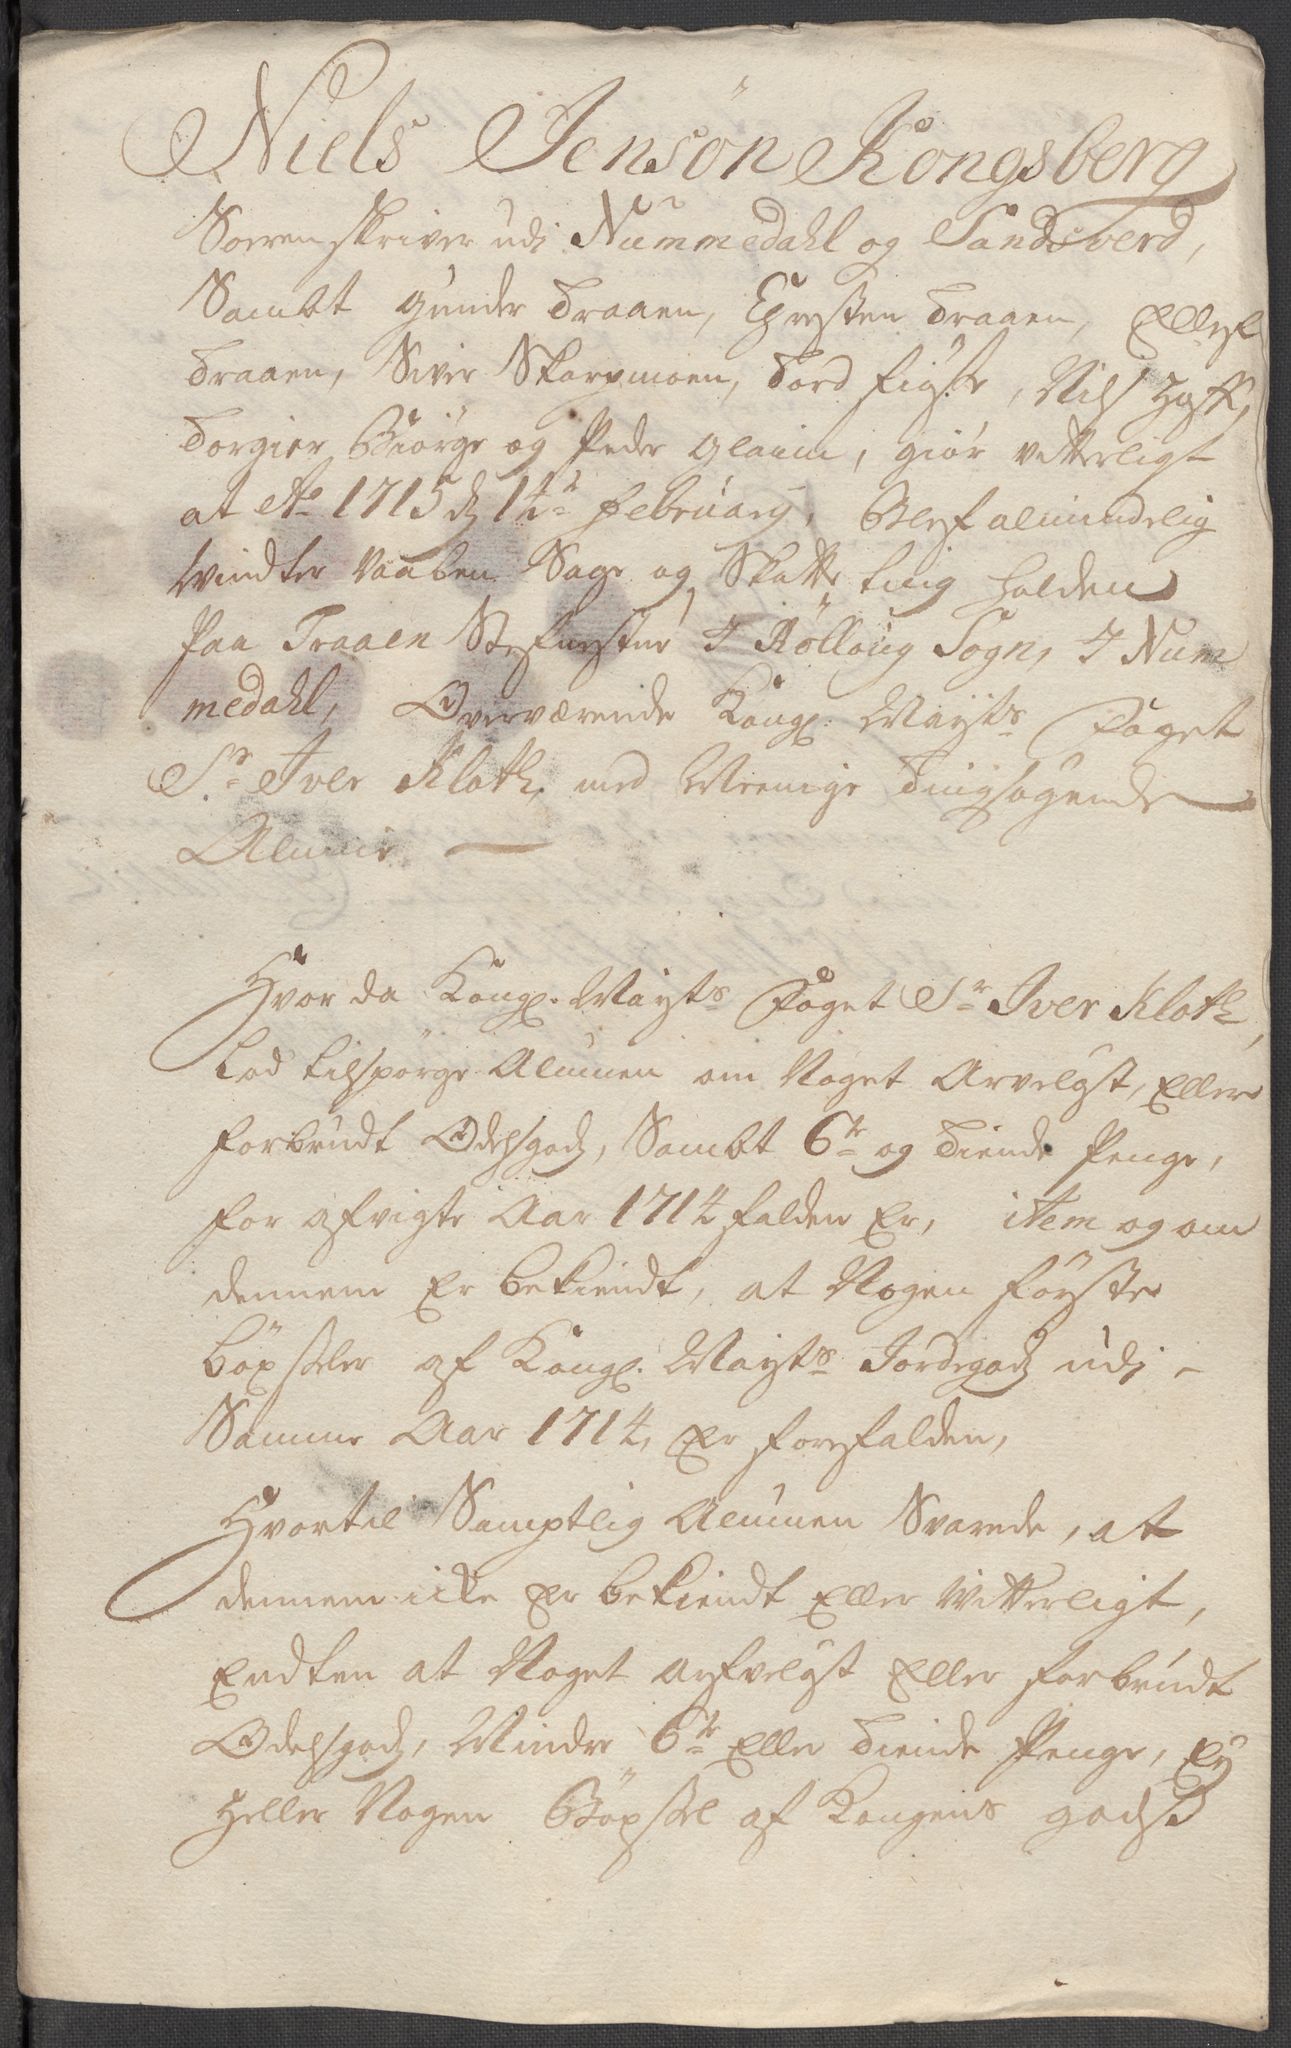 Niels Jensøn Kongsberg
Sorenskriver udj Nummedahl og Sandsverd,
Sambt Gunder Traaen, Christen Traaen, Ellef
Traaen, Siver Skarpmoen, Tord
Torgier Biørge og Peder Glaim, giør vitterligt
at Ao 1715 d 14de Februarj, Blef almindelig
Vindter Vaaben Sage og Skatte ting holden
paa Traaen Stefnestue I Rollaug Sogn, I Num
medahl, Overværende Kongl: Mayts Foget
Sr Iver Kloth, med Meenige Tingsøgende
Almue
Hvor da Kongl. Mayts Foget Sr Iver Kloth,
Lod tilspørge Almuen om Noget Arveløst, Eller
forbrudt Odelsgods, Sambt 6te og Tiende Penge,
for afvigte Aar 1714 falden Er, item og om
dennem Er bekiendt, at Nogen første
böxseler af Kongl. Mayts Jordegods udj
Samme Aar 1714, Er forefalden,
Hvortil Samptlig Almuen Svarede, at
dennem icke Er bekiendt Eller Vitterligt,
Endten at Noget arfveløst Eller forbrudt
Odelsgods, Mindre 6te Eller Tiende Penge, Ey
heller Nogen Böxsel af Kongens gods